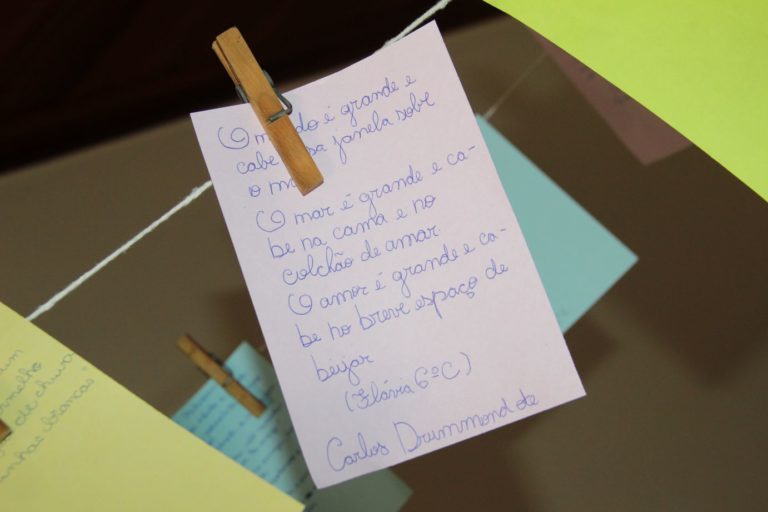 O mundo é grande e
cabe nessa janela sobre
o mar
O mar é grande e ca-
be na cama e no
colchão de amar.
O amor é grande e ca-
be no breve espaço de
beijar
(Flávia 6ºC)
Carlos Drummond de
de chuva
nhas brancas